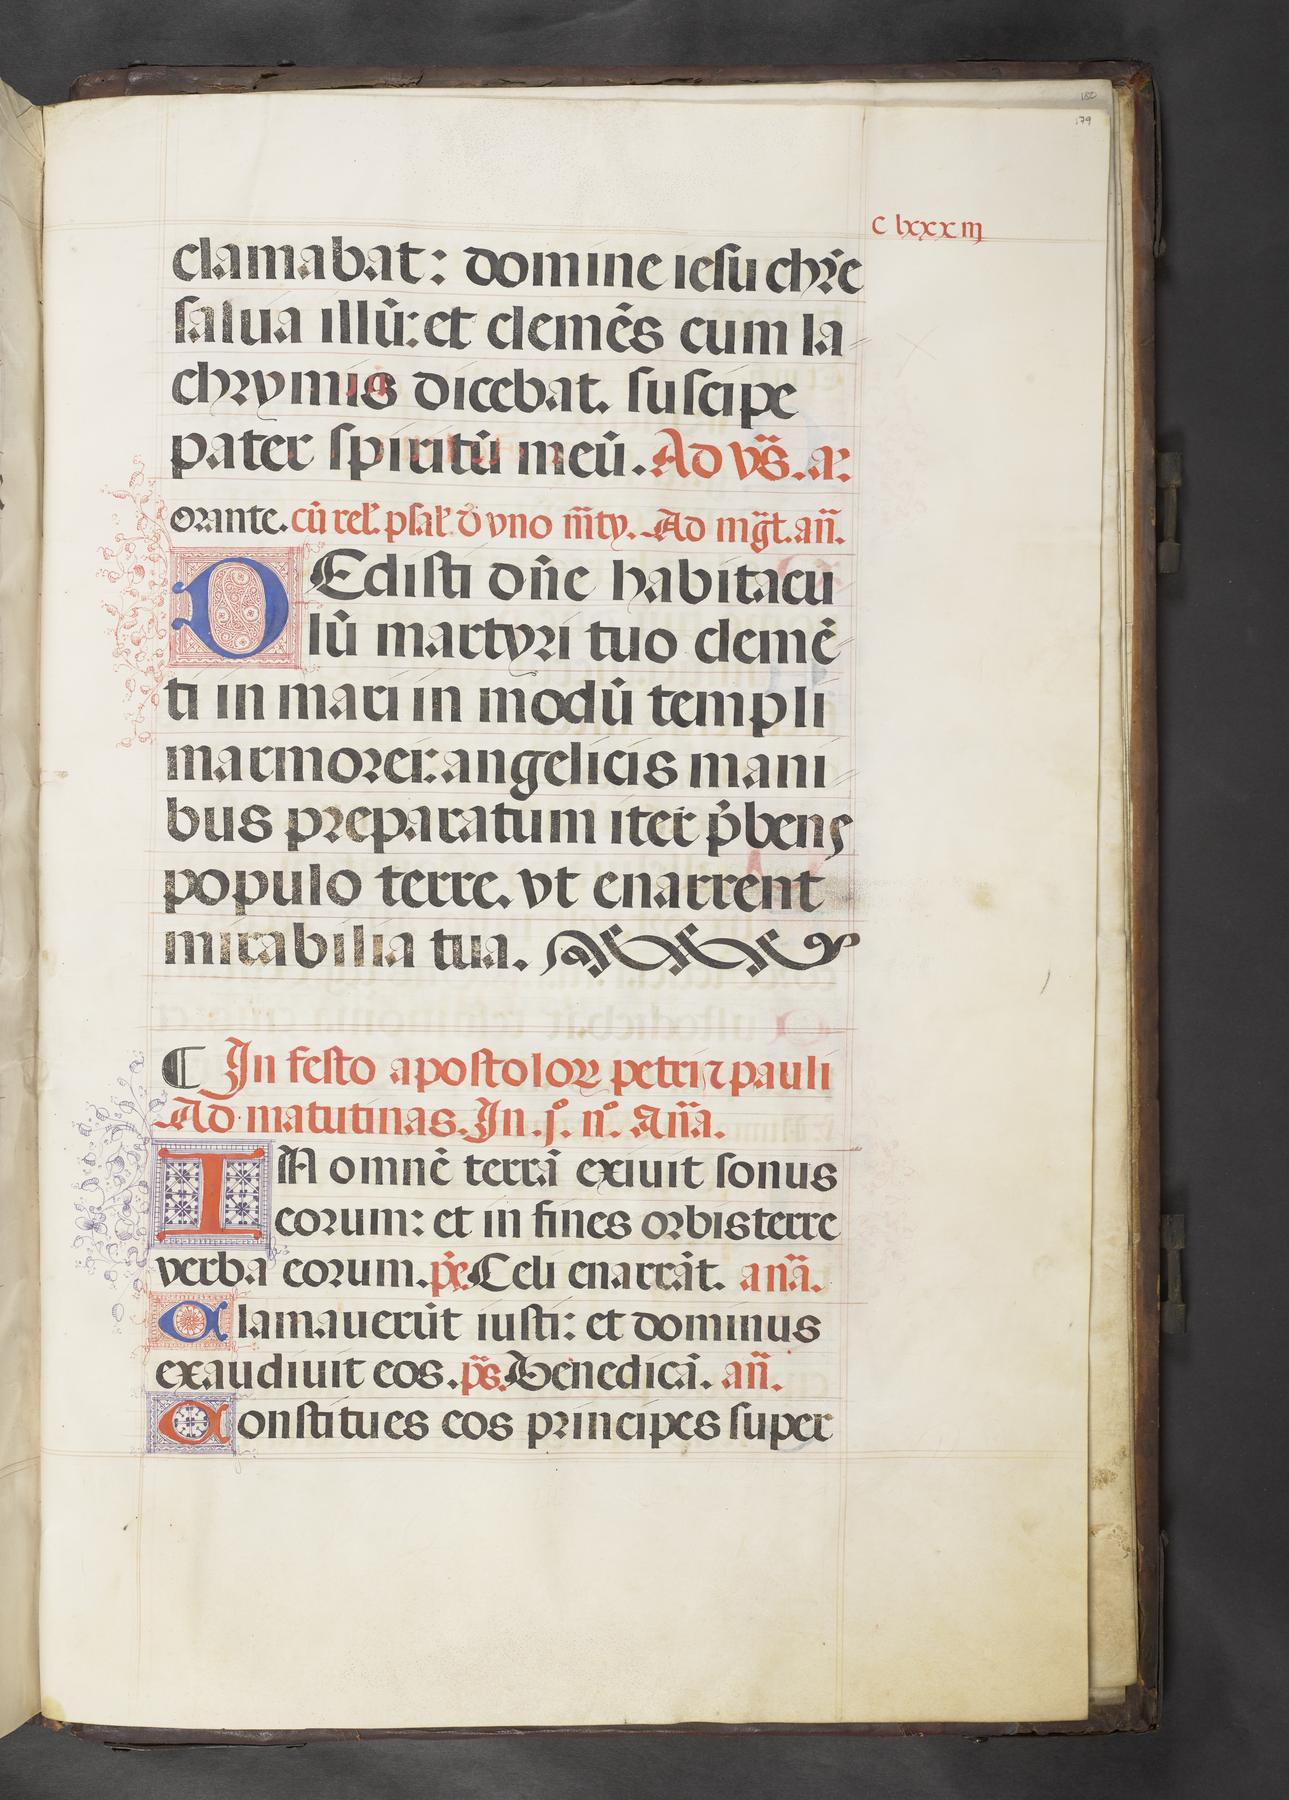 180
179
C lxxx iij
clamabat: domine iesu chr̄e
salua illū: et clemēs cum la
chrymis dicebat. suscipe
pater spiritū meū. Ad vs̄. a.
orante. cū rel'. psal' d' vno m̄ty. Ad mḡt. an̄.
DEdisti dn̄e habitacu
lū martyri tuo clemē
ti in mari in modū templi
marmorei: angelicis mani
bus preparatum iter p̄bens
populo terre. vt enarrent
mirabilia tua.
¶ In festo apostoloꝝ petri ⁊ pauli
Ad matutinas. In .j.º n.º An̄a.
IN omnē terrā exiuit sonus
eorum: et in fines orbis terre
verba eorum. ps̄. Celi enarrāt. anā.
Clamauerūt iusti: et dominus
exaudiuit eos. ps̄. Benedicā. an̄.
Constitues eos principes super